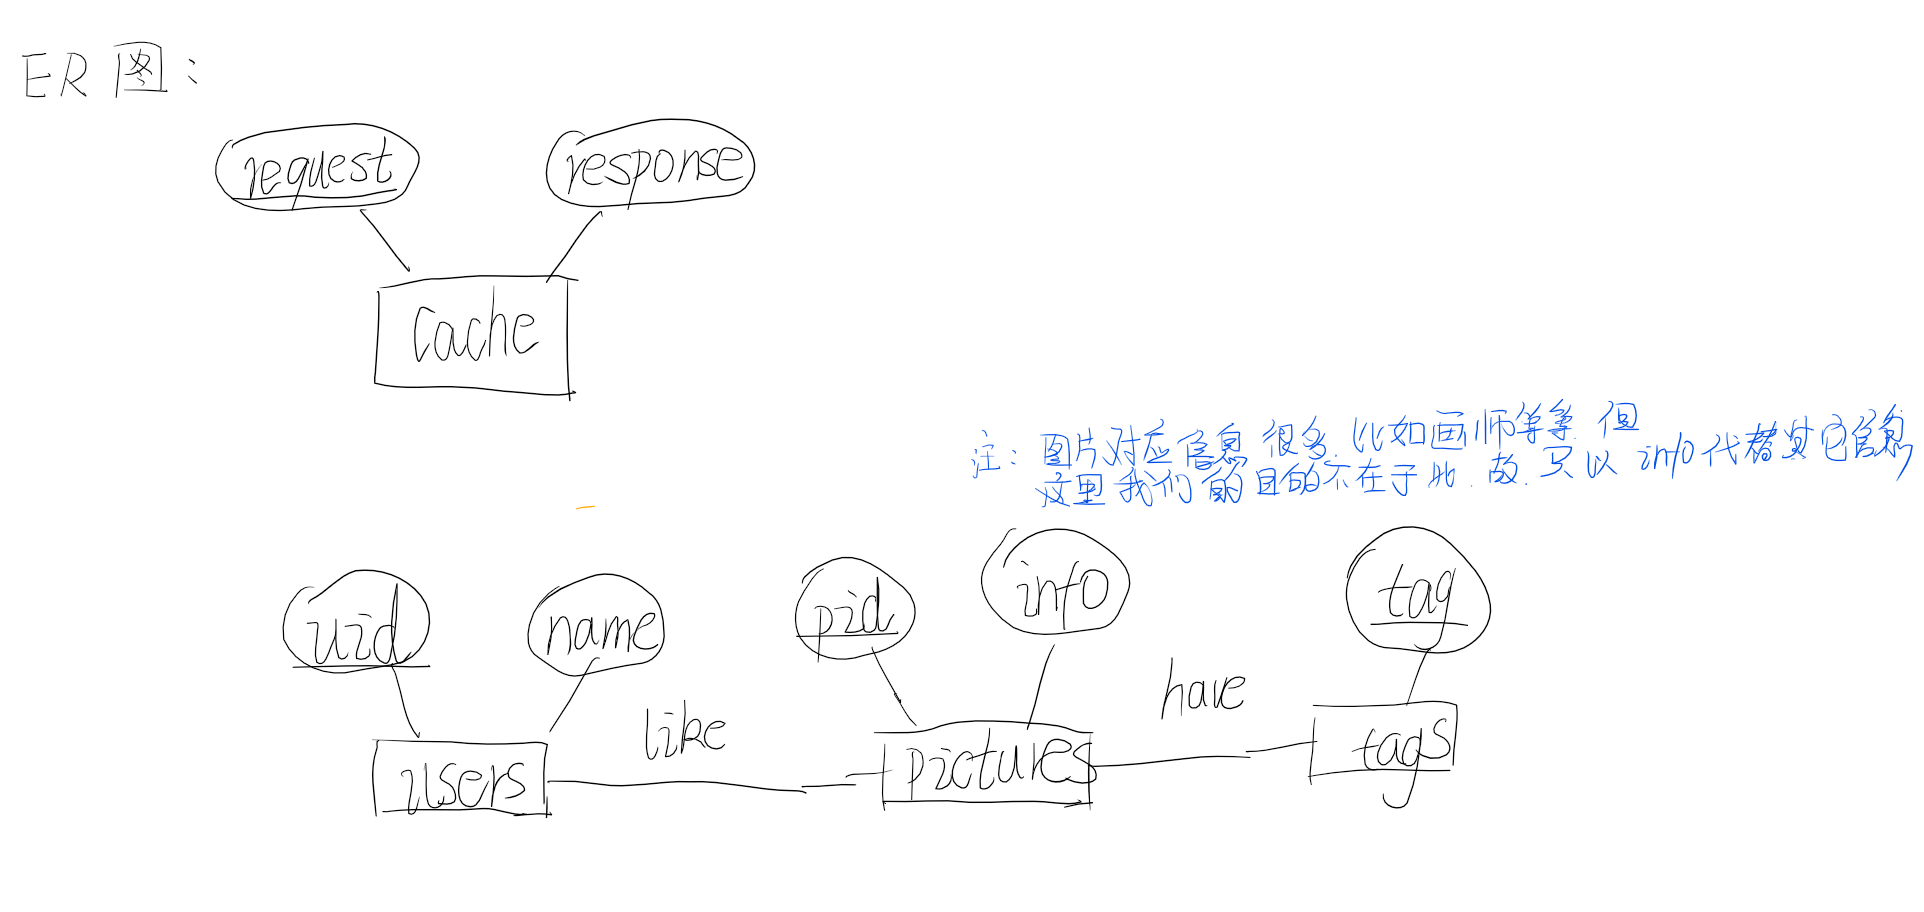 ER图：
request
response
cache
注：图片对应信息很多，比如画师等等，但
这里我们的目的不在于此，故，只以info代替其它信息
uid
name
pid
info
tag
like
have
users
pictures
tags